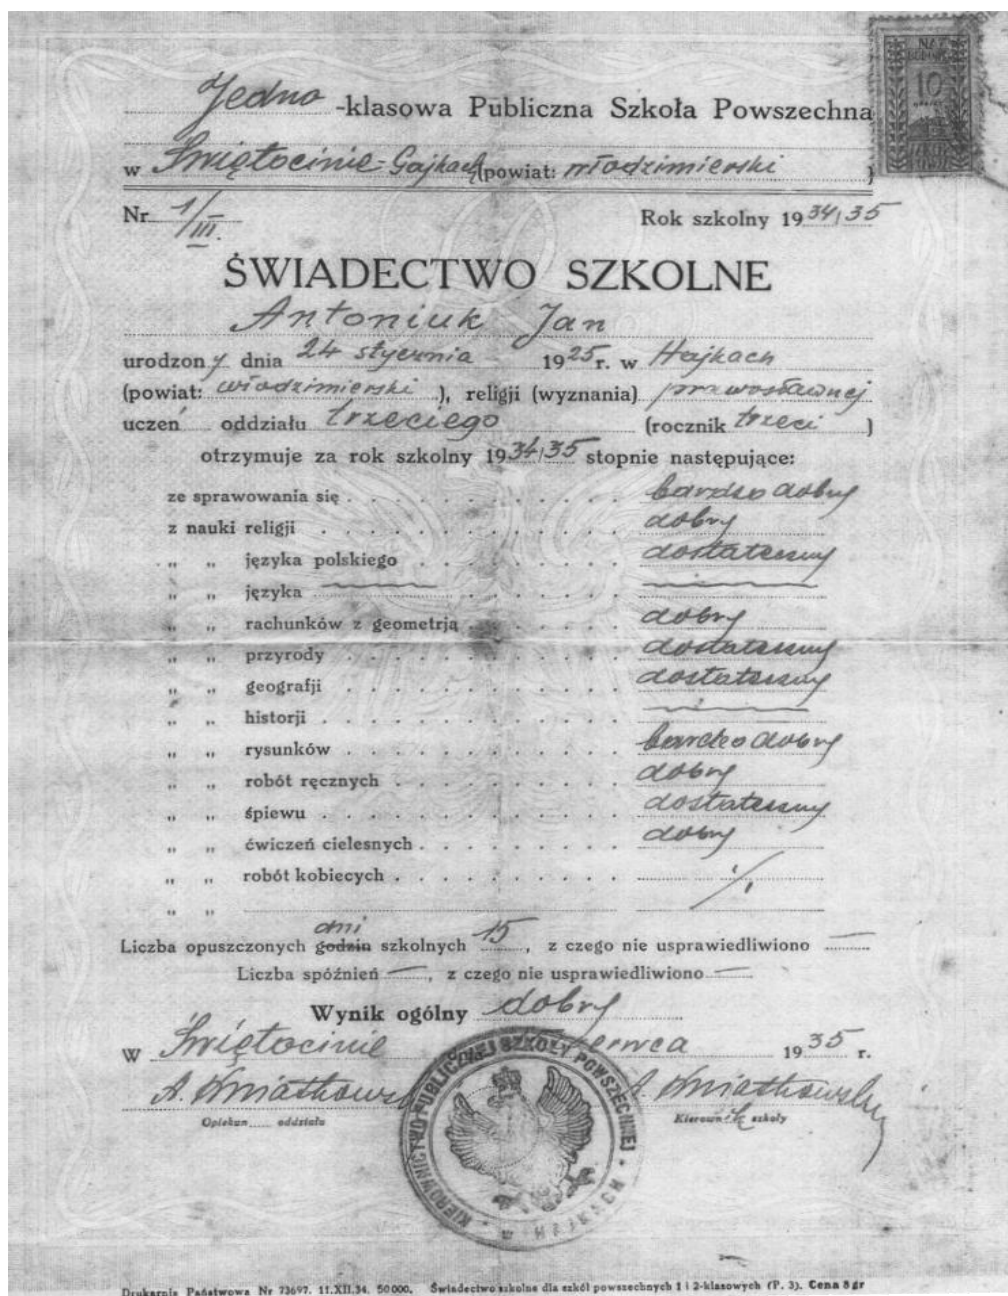 Jedno -klasowa Publiczna Szkoła Powszechna
10
w Świętocinie-Gajkach (powiat: włodzimierski )
Nr 1/III. Rok szkolny 1934/35
ŚWIADECTWO SZKOLNE
Antoniuk Jan
urodzony dnia 24 stycznia 1925 r. w Hajkach
(powiat: włodzimierski ), religji (wyznania) prawosławnej
uczeń oddziału trzeciego (rocznik trzeci )
otrzymuje za rok szkolny 1934/35 stopnie następujące:
ze sprawowania się . . . bardzo dobry
z nauki religji . . . dobry
„ „ języka polskiego . . . dostateczny
„ „ języka
„ „ rachunków z geometrją . . . dobry
„ „ przyrody . . . dostateczny
„ „ geografji . . . dostateczny
„ „ historji . . .
„ „ rysunków . . . bardzo dobry
„ „ robót ręcznych . . . dobry
„ „ śpiewu . . . dostateczny
„ „ ćwiczeń cielesnych . . . dobry
„ „ robót kobiecych . . .
„ „
dni
Liczba opuszczonych godzin szkolnych 15, z czego nie usprawiedliwiono —
Liczba spóźnień —, z czego nie usprawiedliwiono —
Wynik ogólny dobry
w Świętocinie czerwca 1935 r.
A. Kwiatkowski A. Kwiatkowski
Opiekun oddziału Kierownik szkoły
KIEROWNICTWO PUBLICZNEJ SZKOŁY POWSZECHNEJ
Drukarnia Państwowa Nr 73697. 11.XII.34. 50000. Świadectwo szkolne dla szkół powszechnych 1 i 2-klasowych (P. 3). Cena 8 gr